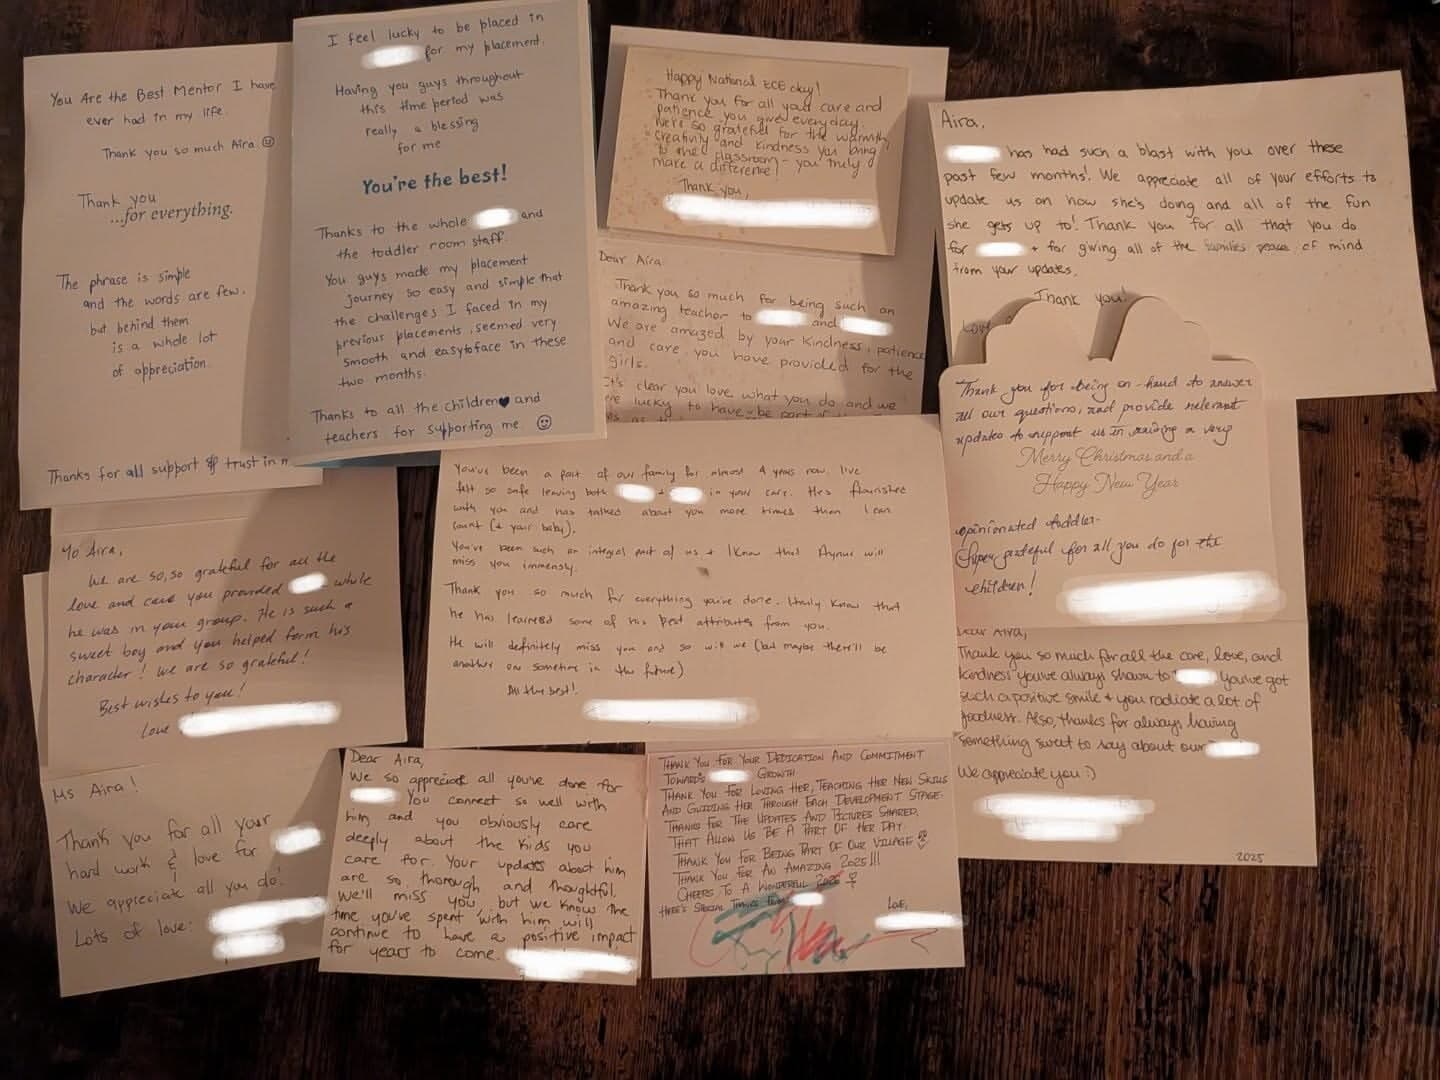 You Are the Best Mentor I have
ever had in my life.
Thank you so much Aira ☺
Thank you
...for everything.
The phrase is simple
and the words are few.
but behind them
is a whole lot
of appreciation.
Thanks for all support & trust in
I feel lucky to be placed in
for my placement.
Having you guys throughout
this time period was
really a blessing
for me
You're the best!
Thanks to the whole and
the toddler room staff.
You guys made my placement
journey so easy and simple that
the challenges I faced in my
previous placements, seemed very
smooth and easy to face in these
two months.
Thanks to all the children♥ and
teachers for supporting me ☺
Happy National ECE day!
Thank you for all your care and
patience you give everyday.
We're so grateful for the warmth,
creativity and kindness you bring
to the classroom - you truly
make a difference!
Thank you,
Dear Aira
Thank you so much for being such an
amazing teacher to and
We are amazed by your kindness, patience
and care you have provided for the
girls.
It's clear you love what you do and we
lucky to have be part of
Aira,
has had such a blast with you over these
past few months! We appreciate all of your efforts to
update us on how she's doing and all of the fun
she gets up to! Thank you for all that you do
for + for giving all of the families peace of mind
from your updates.
Thank you!
Love
Thank you for being on-hand to answer
all our questions, and provide relevant
updates to support us in raising a very
Merry Christmas and a
Happy New Year
opinionated toddler.
Super grateful for all you do for the
children!
To Aira,
We are so, so grateful for all the
love and care you provided while
he was in your group. He is such a
sweet boy and you helped form his
character! We are so grateful!
Best wishes to you!
Love
You've been a part of our family for almost 4 years now. I've
felt so safe leaving both + in your care. He's flourished
with you and has talked about you more times than I can
count (+ your baby).
You've been such an integral part of us + I know that will
miss you immensely.
Thank you so much for everything you've done. I truly know that
he has learned some of his best attributes from you.
He will definitely miss you and so will we (but maybe there'll be
another one sometime in the future)
All the best!
Dear Aira,
Thank you so much for all the care, love, and
kindness you've always shown to you've got
such a positive smile + you radiate a lot of
goodness. Also, thanks for always having
something sweet to say about our
We appreciate you :)
2025
Ms Aira!
Thank you for all your
hard work & love for
We appreciate all you do!
Lots of love:
Dear Aira,
We so appreciate all you've done for
You connect so well with
him and you obviously care
deeply about the kids you
care for. Your updates about him
are so thorough and thoughtful.
We'll miss you, but we know the
time you've spent with him will
continue to have a positive impact
for years to come.
THANK YOU FOR YOUR DEDICATION AND COMMITMENT
TOWARDS GROWTH
THANK YOU FOR LOVING HER, TEACHING HER NEW SKILLS
AND GUIDING HER THROUGH EACH DEVELOPMENT STAGE.
THANKS FOR THE UPDATES AND PICTURES SHARED,
THAT ALLOW US BE A PART OF HER DAY.
THANK YOU FOR BEING PART OF OUR VILLAGE
THANK YOU FOR AN AMAZING 2025!!!
CHEERS TO A WONDERFUL 2026
HERE'S SPECIAL THANKS FROM
LOVE,